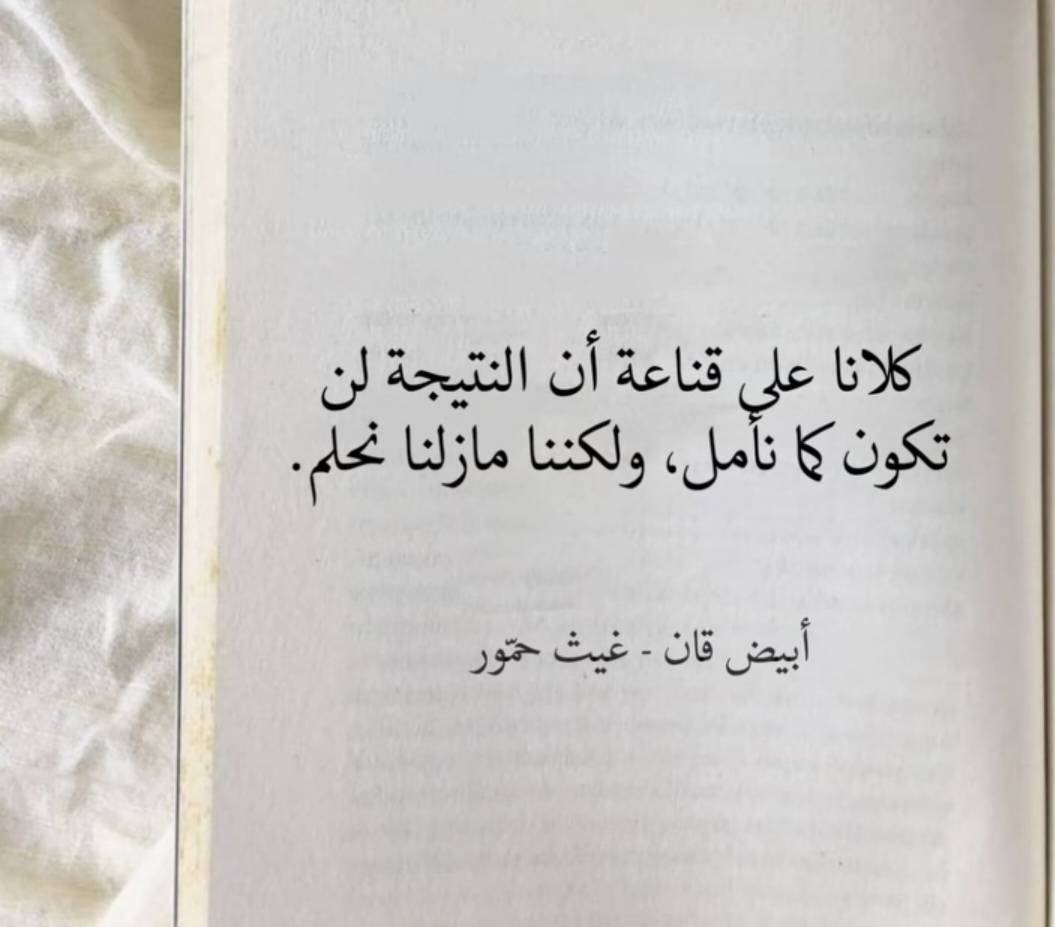 كلانا علي قناعة أن النتيجة لن
تكون كما نأمل، ولكننا مازلنا نحلم.
أبيض قان - غيث حمّور